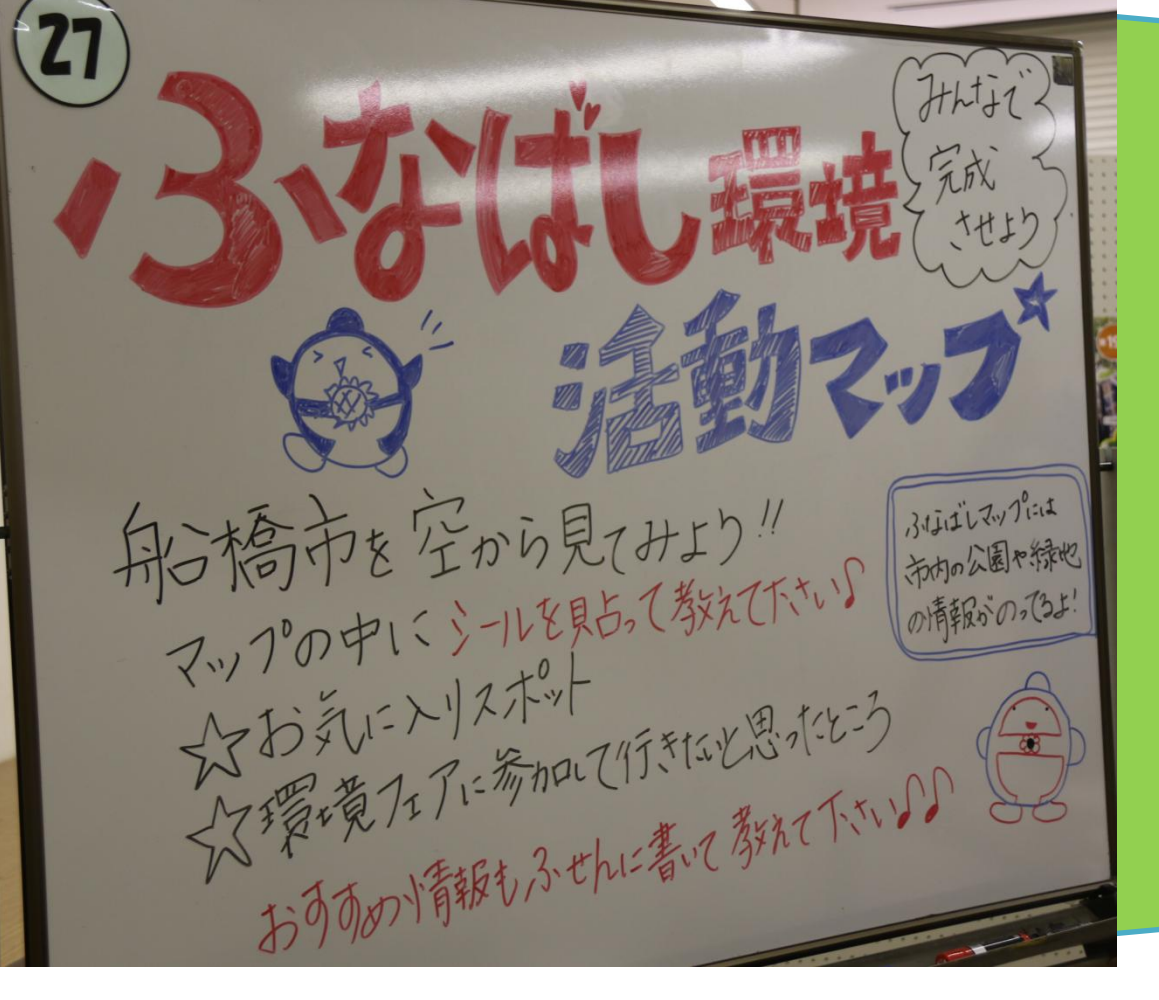 27
ふなばし環境
みんなで
完成
させよう
活動マップ
船橋市を空から見てみよう!!
マップの中にシールを貼って教えて下さい♪
☆お気に入りスポット
☆環境フェアに参加して行きたいと思ったところ
おすすめ情報もふせんに書いて教えて下さい♪♪
ふなばしマップには
市内の公園や緑地
の情報がのってるよ!